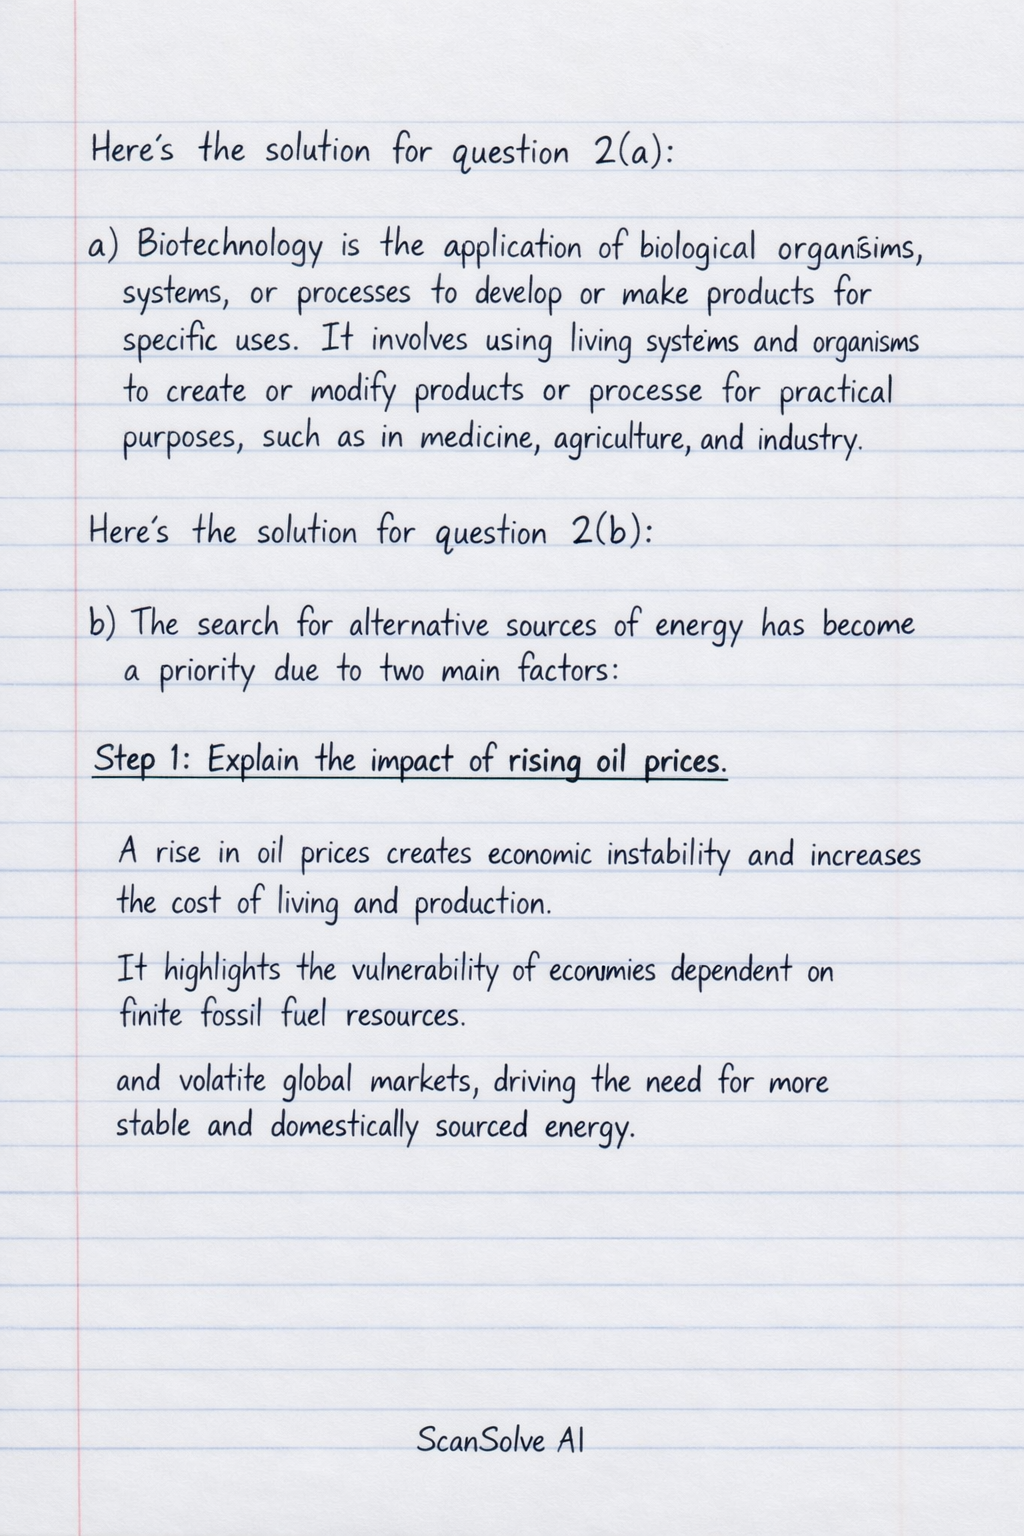 Here's the solution for question 2(a):
a) Biotechnology is the application of biological organisims,
systems, or processes to develop or make products for
specific uses. It involves using living systems and organisms
to create or modify products or processe for practical
purposes, such as in medicine, agriculture, and industry.
Here's the solution for question 2(b):
b) The search for alternative sources of energy has become
a priority due to two main factors:
Step 1: Explain the impact of rising oil prices.
A rise in oil prices creates economic instability and increases
the cost of living and production.
It highlights the vulnerability of econumies dependent on
finite fossil fuel resources.
and volatite global markets, driving the need for more
stable and domestically sourced energy.
ScanSolve AI